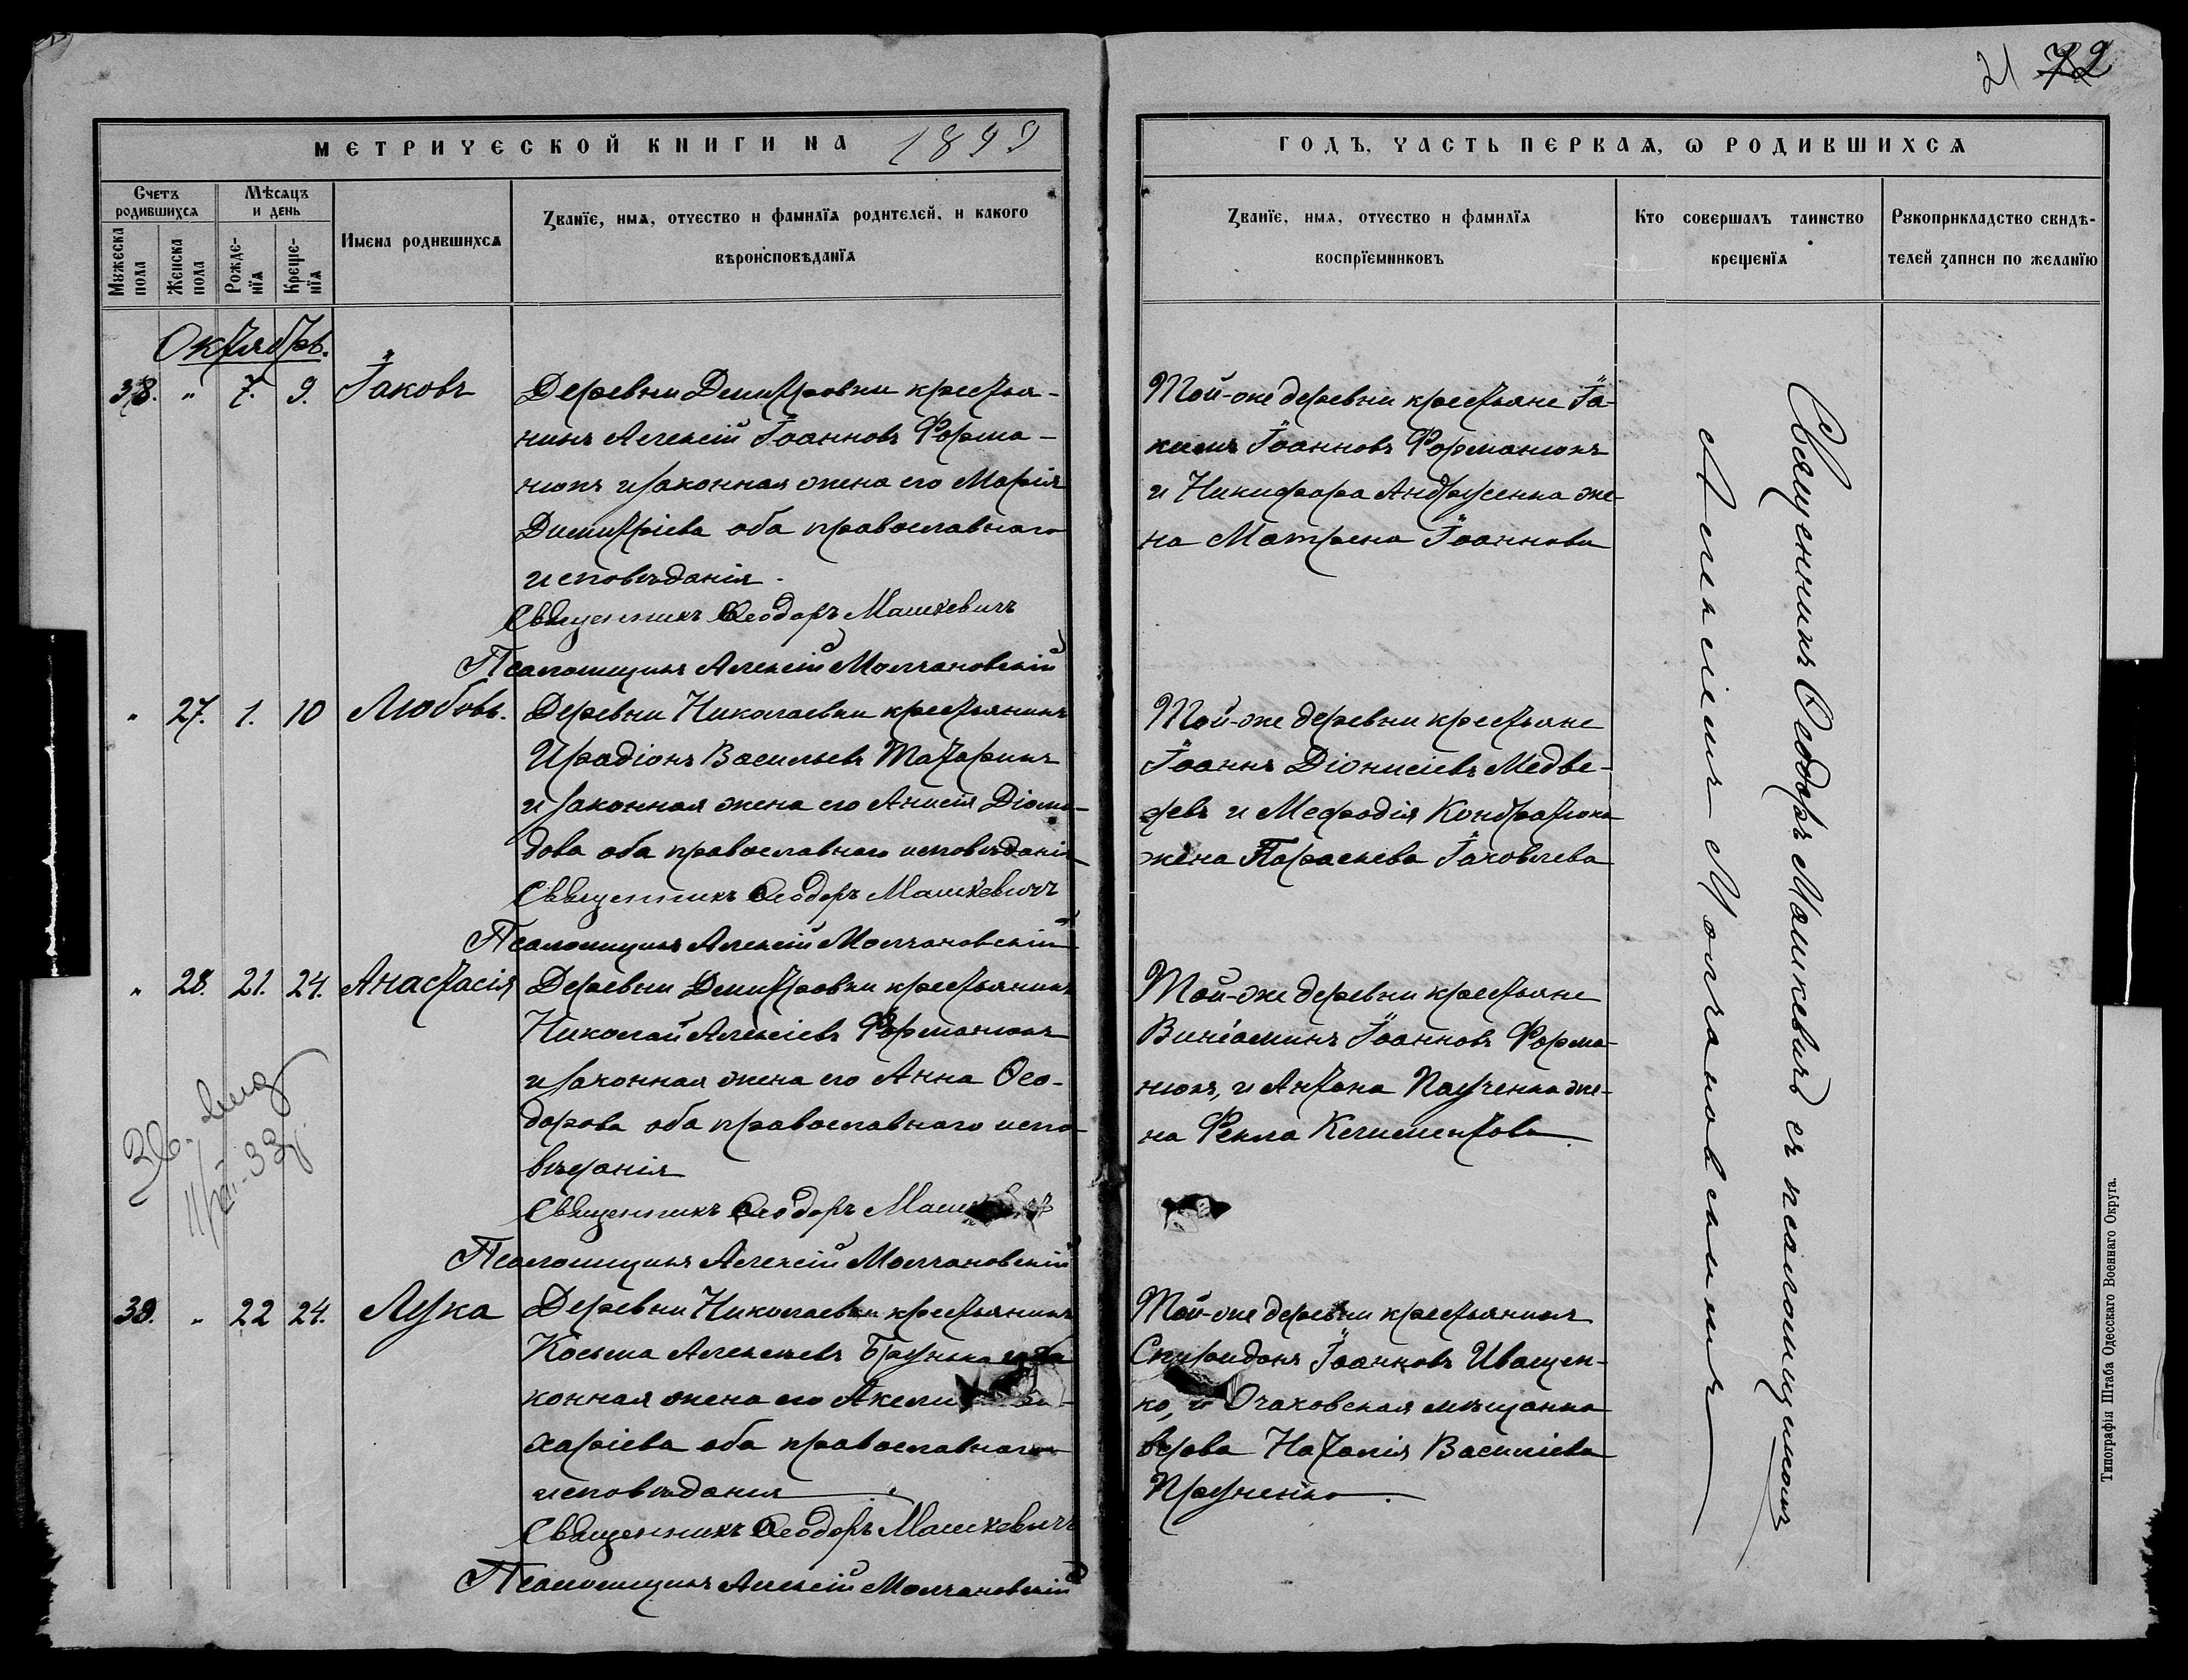 21 72
МЕТРИЧЕСКОЙ КНИГИ НА 1899
ГОДЪ, ЧАСТЬ ПЕРВАЯ, Ѡ РОДИВШИХСЯ
Счетъ родившихся
Мѣсяцъ и день
Мужеска пола
Женска пола
Рожде-нїя
Креще-нїя
Имена родившихся
Званїе, имя, отчество и фамилїя родителей, и какого
вѣроисповѣданїя
Званїе, имя, отчество и фамилїя
воспрїемниковъ
Кто совершалъ таинство
крещенїя
Рукоприкладство свидѣ-
телей записи по желанїю
Октябрь.
38. " 7. 9. Іаковъ
Деревни Димитровки крестья-
нинъ Алексій Іоанновъ Форма-
нюкъ и законная жена его Марія
Димитріева оба православнаго
исповѣданія.
Священникъ Ѳеодоръ Машкевичъ
Псаломщикъ Алексій Молчановскій
Той-же деревни крестьяне Іа-
кимъ Іоанновъ Форманюкъ
и Никифора Андрусенка же-
на Матрена Іоаннова
" 27. 1. 10 Любовь.
Деревни Николаевки крестьянинъ
Иродіонъ Васильевъ Татаринъ
и законная жена его Анисія Діоми-
дова оба православнаго исповѣданія
Священникъ Ѳеодоръ Машкевичъ
Псаломщикъ Алексій Молчановскій
Той-же деревни крестьяне
Іоаннъ Діонисіевъ Медве-
девъ и Мефодія Кондратюка
жена Параскева Іаковлева
" 28. 21. 24. Анастасія
Деревни Димитровки крестьянинъ
Николай Алексіевъ Форманюкъ
и законная жена его Анна Ѳео-
дорова оба православнаго испо-
вѣданія
Священникъ Ѳеодоръ
Псаломщикъ Алексій Молчановскій
Той-же деревни крестьяне
Виніаминъ Іоанновъ Форма-
нюкъ, и Антона Паученка же-
на Фекла Климентова
39. " 22 24. Лука
Деревни Николаевки крестьянинъ
Косьма Алексѣевъ и за-
конная жена его
харіева оба православнаго
исповѣданія.
Священникъ Ѳеодоръ Машкевичъ
Псаломщикъ Алексій Молчановскій
Той-же деревни крестьянинъ
Спиридонъ Іоанновъ Иващен-
ко, и Очаковская мѣщанка
вдова Наталія Василіева
Священникъ Ѳеодоръ Машкевичъ съ псаломщикомъ
Алексіемъ Молчановскимъ
Типографія Штаба Одесскаго Военнаго Округа.